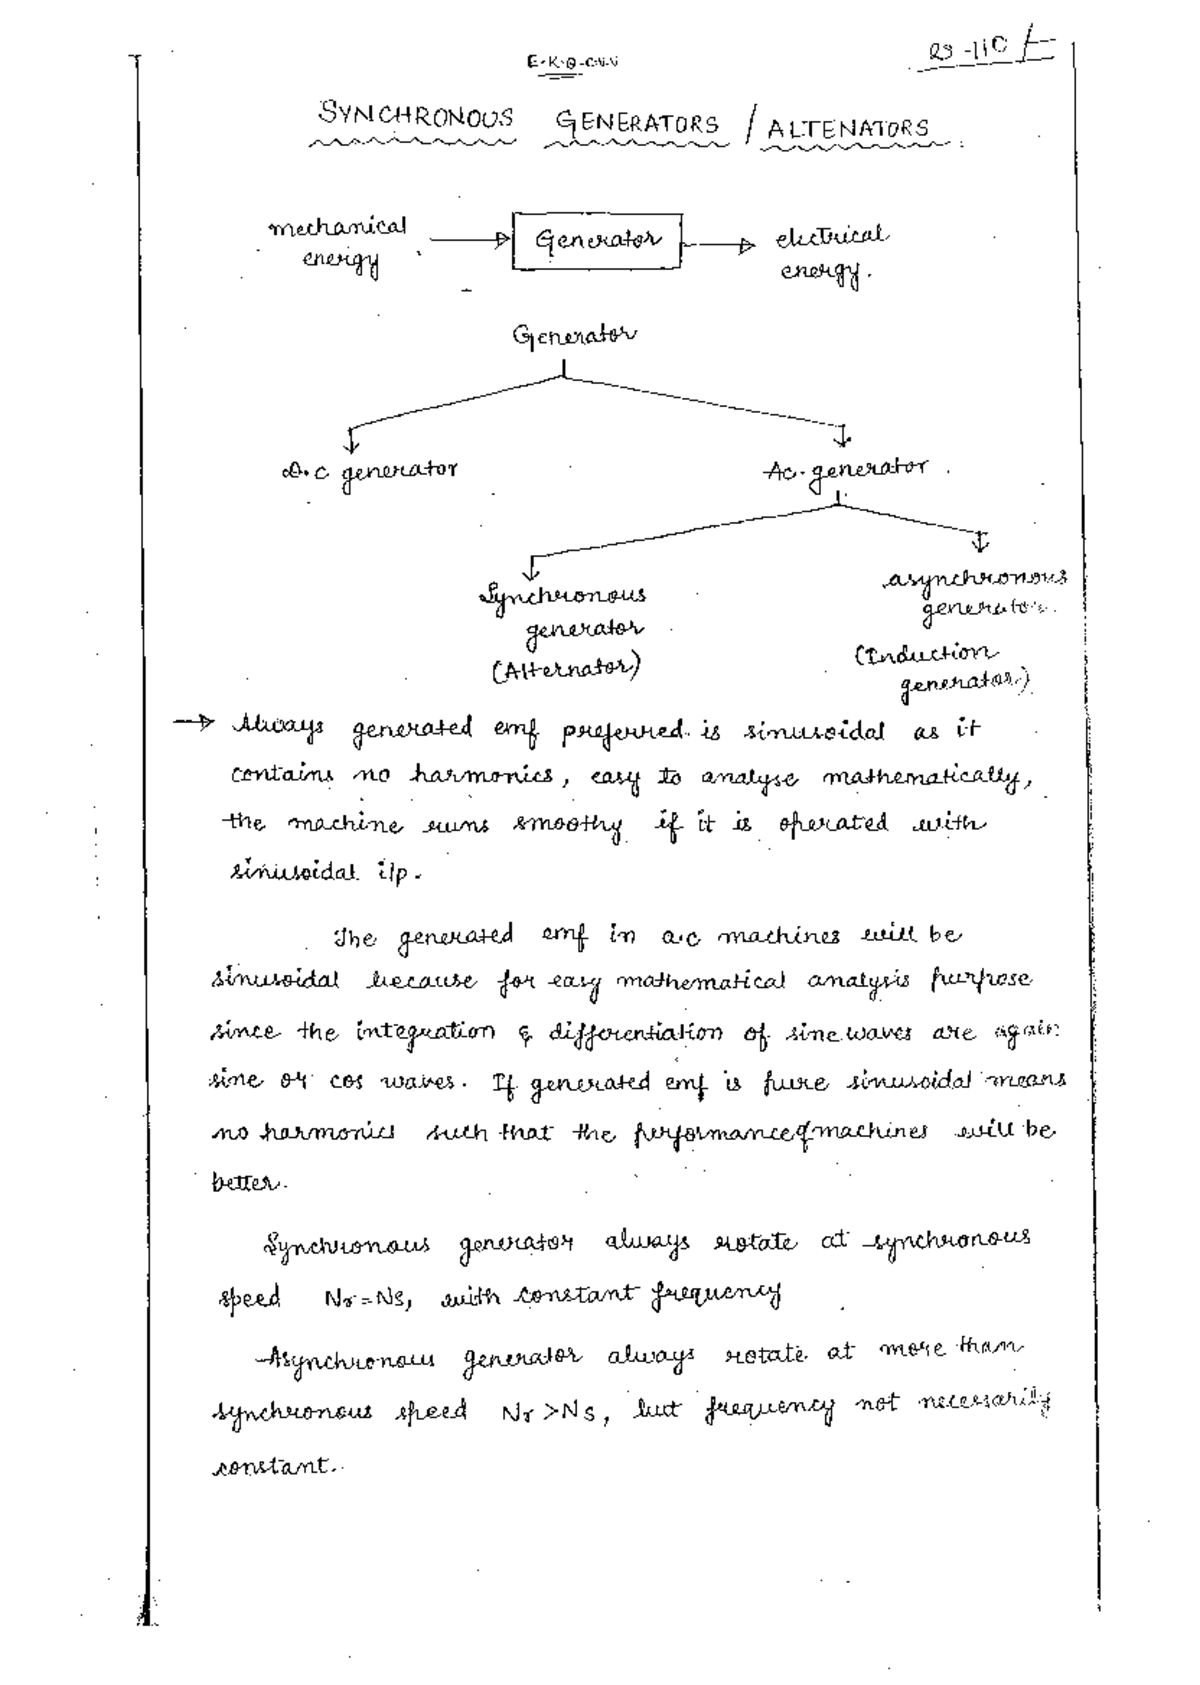 E-K-Q-C-V-V
Rs -110 /-
SYNCHRONOUS GENERATORS / ALTENATORS
mechanical
energy
Generator
electrical
energy.
Generator
D.C generator
Ac generator
Synchronous
generator
(Alternator)
asynchronous
generator.
(Induction
generator)
→ Always generated emf preferred is sinusoidal as it
contains no harmonics, easy to analyse mathematically,
the machine runs smoothy if it is operated with
sinusoidal i/p.
The generated emf in a.c machines will be
sinusoidal because for easy mathematical analysis purpose
since the integration & differentiation of sine waves are again
sine or cos waves. If generated emf is pure sinusoidal means
no harmonics such that the performance of machines will be
better.
Synchronous generator always rotate at synchronous
speed Nr=Ns, with constant frequency
Asynchronous generator always rotate at more than
synchronous speed Nr>Ns, but frequency not necessarily
constant.